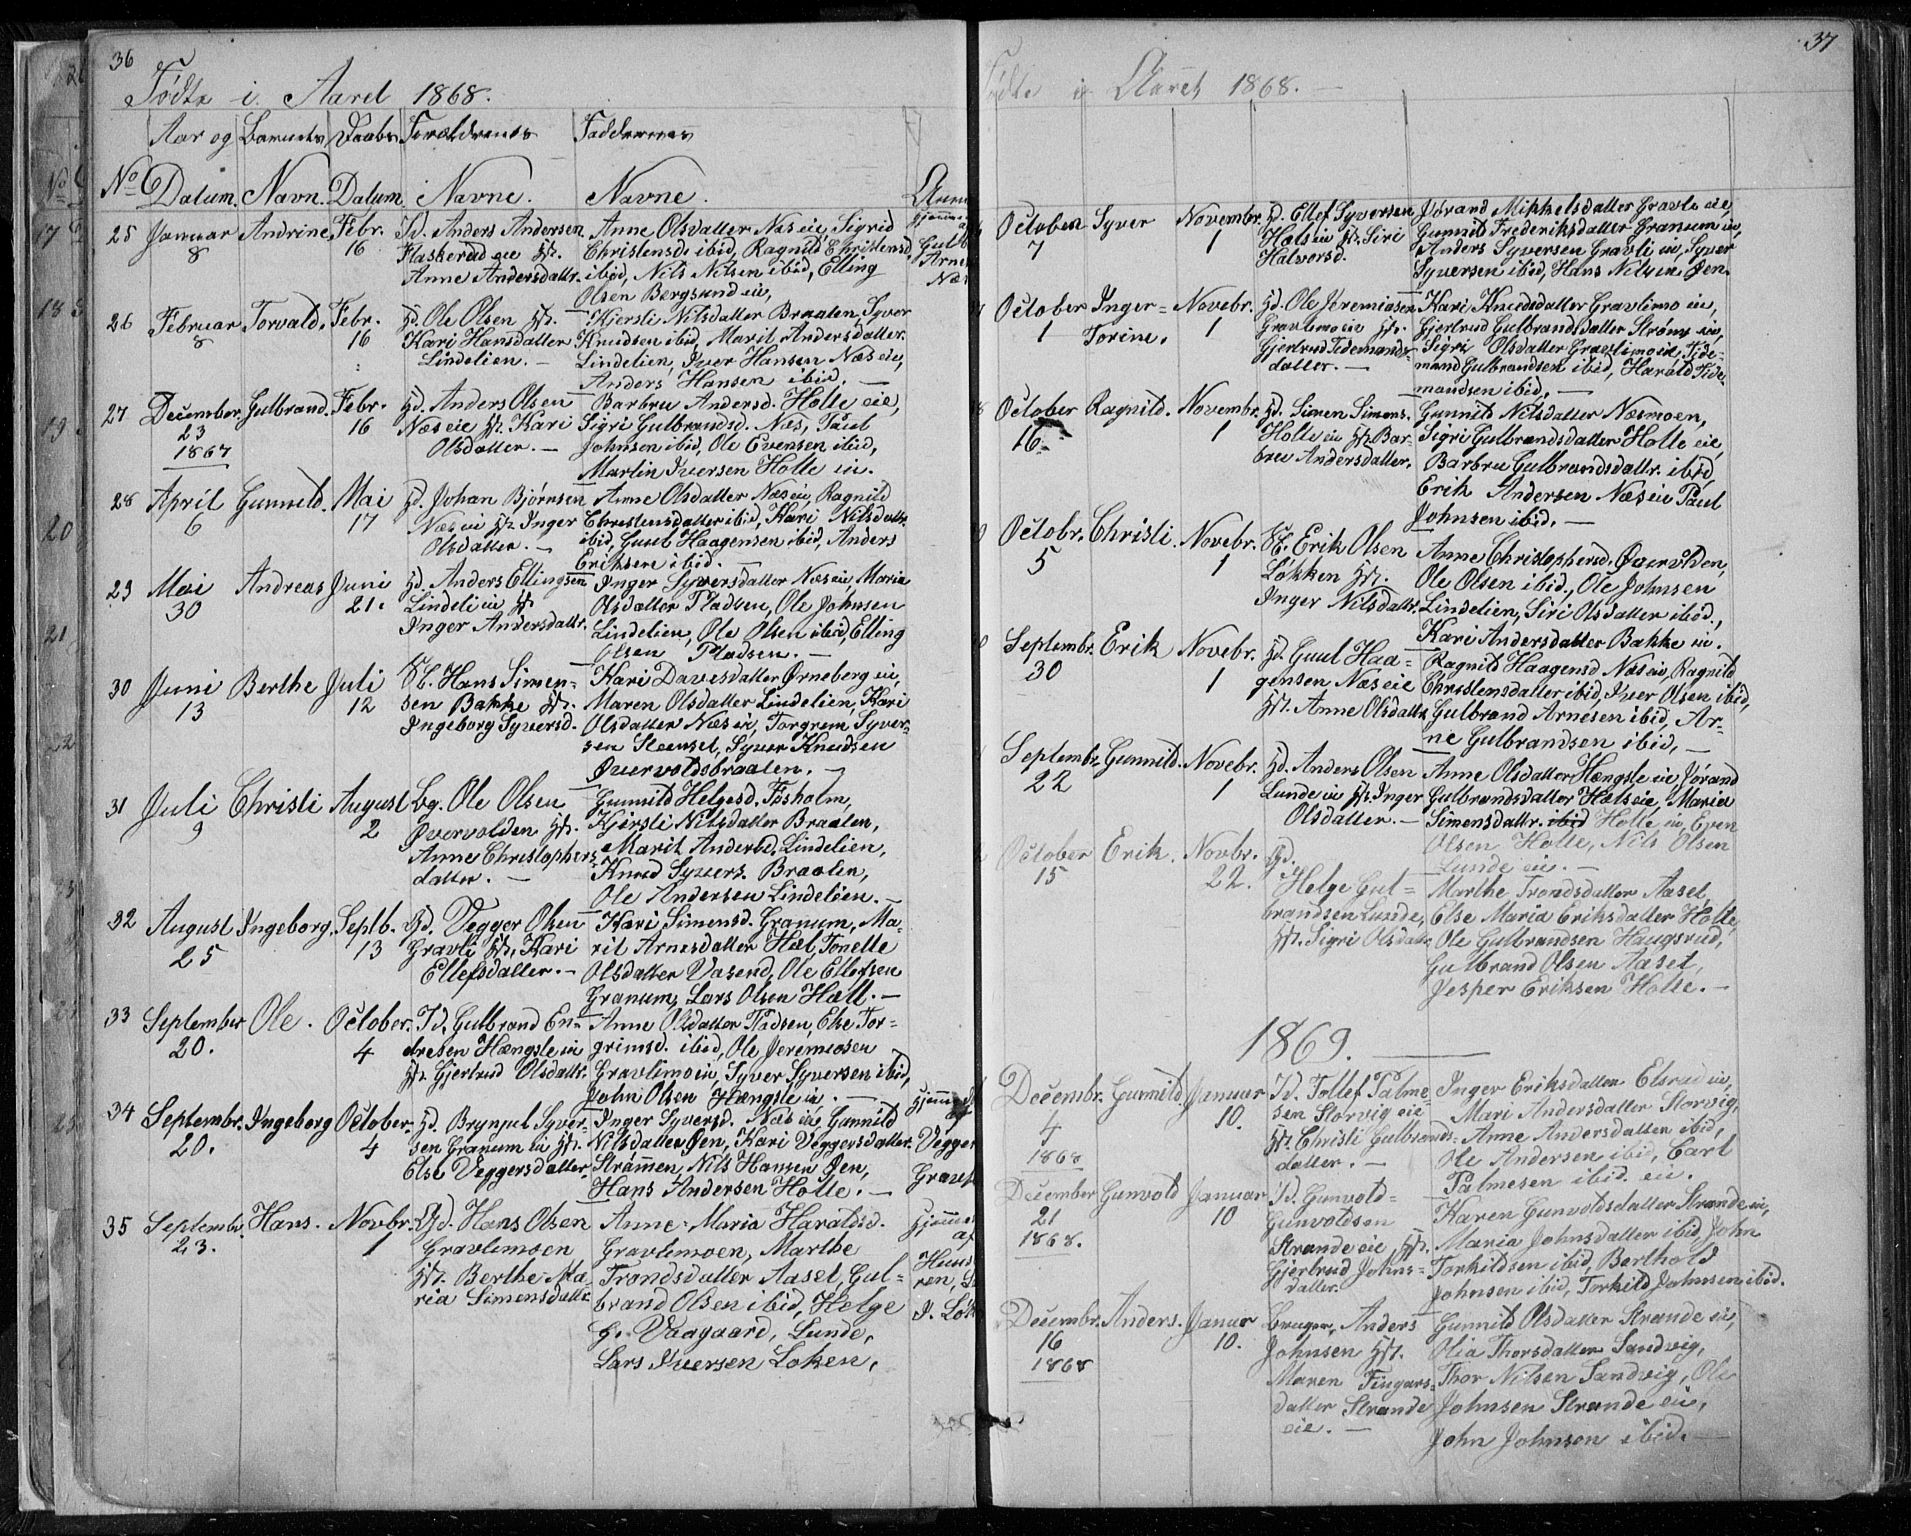 36
Fødte i Aaret 1868.
Aar og Barnets Daabs Forældrenes Faddernes
No Datum. Navn. Datum. Navne. Navne.
25 Januar 8 Andrine, Febr. 16
Anders Andersen
Flaskerud eie
Anne Andersdatter.
Anne Olsdatter Næs eie, Sigrid
Christensd. ibid, Ragnild Christensd.
ibid, Nils Nilsen ibid, Elling
Olsen Bergsund eie,
26 Februar 8 Torvald. Febr. 16
Ole Olsen
Kari Hansdatter
Lindelien. —
Kjersti Nilsdatter Braalen, Syver
Knudsen ibid, Marit Andersdatter
Lindelien, Iver Hansen Næs eie,
Anders Hansen ibid. —
27 December 23 1867 Gulbrand. Febr. 16
Anders Olsen
Næs eie Kari
Olsdatter. —
Barbru Andersd. Holte eie,
Sigri Gulbrandsd. Næs, Paul
Johnsen ibid, Ole Evensen ibid,
Martin Iversen Holte eie.
28 April 6 Gunnild. Mai 17
Johan Bjørnsen
Næs eie Inger
Olsdatter. —
Anne Olsdatter Næs eie, Ragnild
Christensdatter ibid, Kari Nilsdatr.
ibid, Guul Haagensen ibid, Anders
Eriksen ibid. —
29 Mai 30 Andreas Juni 21.
Anders Ellingsen
Lindeli eie
Inger Andersdatr.
Inger Syversdatter Næs eie, Maria
Olsdatter Pladsen, Ole Johnsen
Lindelien, Ole Olsen ibid, Elling
Olsen Pladsen. —
30 Juni 13 Berthe Juli 12
Hans Simen-
sen Bakke
Ingeborg Syversd.
Kari Davesdatter Ørneberg eie,
Maren Olsdatter Lindelien, Kari
Olsdatter Næs eie, Torgrem Syver-
sen Steenset, Syver Knudsen
Øvervoldsbraaten. —
31 Juli 9 Christi August 2
Bg. Ole Olsen
Øvervolden
Anne Christophers
datter. —
Gunnild Helgesd. Fosholm,
Kjersti Nilsdatter Braalen,
Marit Andersd. Lindelien,
Knud Syvers. Braalen,
Ole Andersen Lindelien. —
32 August 25 Ingeborg. Septb. 13
Vegger Olsen
Gravli Kari
Ellefsdatter. —
Kari Simensd. Granum, Ma-
rit Arnesdatter Hæl, Tonette
Olsdatter Vasend, Ole Ellefsen
Granum, Lars Olsen Hæll. —
33 September 20. Ole. October. 4
Gulbrand En-
dresen Hængsle eie
Gjertrud Olsdatr.
Anne Olsdatter Pladsen, Else Tor-
grimsd. ibid, Ole Jeremiasen
Gravlimo eie, Syver Syversen ibid,
John Olsen Hængsle eie. —
34 Septembr. 20. Ingeborg October. 4
Brynjul Syver-
sen Granum eie
Else Veggersdatter
Inger Syversd. Næs eie, Gunnild
Nilsdatter Øen, Kari Veggersdatter
Strømmen, Nils Hansen Øen,
Hans Andersen Holte. —
35 Septembr. 23. Hans. Novbr. 1
Hans Olsen
Gravlemoen
Berthe Ma-
ria Simensdatter
Anne Maria Haraldsd.
Gravlemoen, Marthe
Trondsdatter Aaset, Gul-
brand Olsen ibid, Helge
G. Vaagaard, Lunde,
Lars Iversen Loken,
37
Fødte i Aaret 1868. —
October 7 Syver Novembr. 1
Ellef Syversen
Hæls eie Siri
Halvorsd.
Jørand Mikkelsdatter Gravli eie,
Gunnild Frederiksdatter Granum eie,
Anders Syversen Gravli eie, Syver
Syversen ibid, Hans Nilsen Øen.
October 1 Inger- Torine. Novebr. 1
Ole Jeremiasen
Gravlimo eie
Gjertrud Tidemands-
datter. —
Kari Knudsdatter Gravlimo eie,
Gjertrud Gulbrandsdatter Strøms eie,
Sigri Olsdatter Gravlimo eie, Tide-
mand Gulbrandsen ibid, Harald Tide-
mandsen ibid. —
October 16. Ragnild. Novembr. 1
Simen Simens.
Holte eie Bar-
bru Andersdatter.
Gunnild Nilsdatter Næsmoen,
Sigri Gulbrandsdatter Holte eie
Barbru Gulbrandsdatr. ibid
Erik Andersen Næs eie Paul
Johnsen ibid. —
Octobr. 5 Christi. Novebr. 1
Erik Olsen
Løkken
Inger Nilsdatr.
Anne Christophersd. Øvervolden,
Ole Olsen ibid., Ole Johnsen
Lindelien, Siri Olsdatter ibid.,
Kari Andersdatter Bakke eie.
Septembr. 30 Erik Novebr. 1
Guul Haa-
gensen Næs eie
Anne Olsdattr.
Ragnild Haagensd. Næs eie, Ragnild
Christensdatter ibid, Iver Olsen ibid,
Gulbrand Arnesen ibid, Ar-
ne Gulbrandsen ibid, —
Septembr. 22 Gunnild. Novebr. 1
Anders Olsen
Lunde eie Inger
Olsdatter. —
Anne Olsdatter Hængsle eie Jørand
Gulbrandsdatter Hæls eie, Maria
Simensdatr. ibid Holte eie, Even
Olsen Holte, Nils Olsen
Lunde eie. —
October 15 Erik. Novbr. 22.
Helge Gul-
brandsen Lunde,
Sigri Olsdatr.
Marthe Trondsdatter Aaset,
Else Maria Eriksdatter Holte,
Ole Gulbrandsen Haugsrud,
Gulbrand Olsen Aaset,
Jesper Eriksen Holte. —
1869.
Decembr. 4 1868 Gunnild Januar 10.
Tollef Palme-
sen Storvig eie
Christi Gulbrands-
datter. —
Inger Eriksdatter Elsrud eie,
Mari Andersdatter Storvig,
Anne Andersdatter ibid,
Ole Andersen ibid, Carl
Palmesen ibid. eie.
December 21 1868. Gunvold Januar 10
Gunvold
Gunvoldsen
Strande eie,
Gjertrud Johns-
datter.
Karen Gunvoldsdatter Strande eie,
Maria Johnsdatter ibid, John
Torkildsen ibid, Berthold
Johnsen ibid, Torkild Johnsen ibid.
Decembr. 16 1868 Anders. Januar 10.
Bruger, Anders
Johnsen
Maren Fingars-
datter Strande
eie. —
Gunnild Olsdatter Strande eie,
Olia Thorsdatter Sandvig,
Thor Nilsen Sandvig, Ole
Johnsen Strande eie,
John Johnson ibid. —